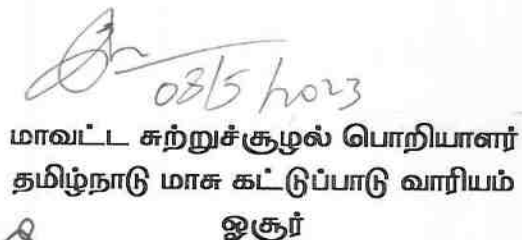 08/5/2023
மாவட்ட சுற்றுச்சூழல் பொறியாளர்
தமிழ்நாடு மாசு கட்டுப்பாடு வாரியம்
ஓசூர்